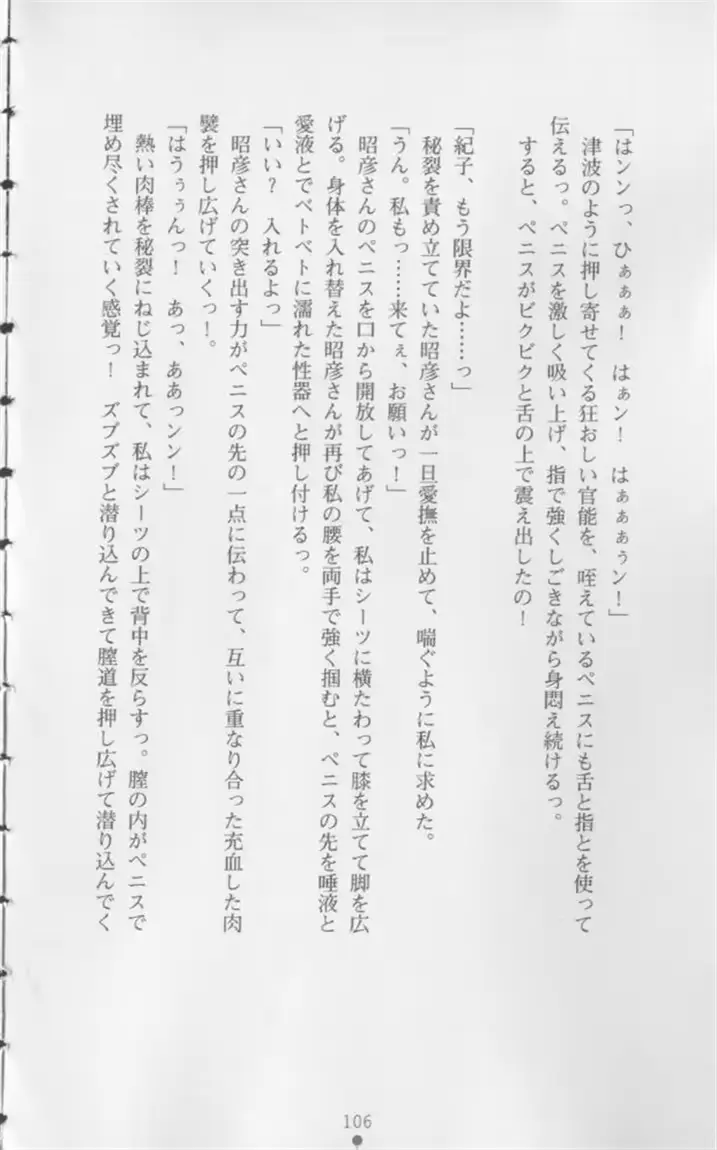 「はンンっ、ひぁぁぁ！　はぁン！　はぁぁぁぅン！」
津波のように押し寄せてくる狂おしい官能を、咥えているペニスにも舌と指とを使って
伝えるっ。ペニスを激しく吸い上げ、指で強くしごきながら身悶え続けるっ。
すると、ペニスがビクビクと舌の上で震え出したの！
「紀子、もう限界だよ……っ」
秘裂を責め立てていた昭彦さんが一旦愛撫を止めて、喘ぐように私に求めた。
「うん。私もっ……来てぇ、お願いっ！」
昭彦さんのペニスを口から開放してあげて、私はシーツに横たわって膝を立てて脚を広
げる。身体を入れ替えた昭彦さんが再び私の腰を両手で強く掴むと、ペニスの先を唾液と
愛液とでベトベトに濡れた性器へと押し付けるっ。
「いい？　入れるよっ」
昭彦さんの突き出す力がペニスの先の一点に伝わって、互いに重なり合った充血した肉
襞を押し広げていくっ！。
「はうぅぅんっ！　あっ、ああっンン！」
熱い肉棒を秘裂にねじ込まれて、私はシーツの上で背中を反らすっ。膣の内がペニスで
埋め尽くされていく感覚っ！　ズブズブと潜り込んできて膣道を押し広げて潜り込んでく
106